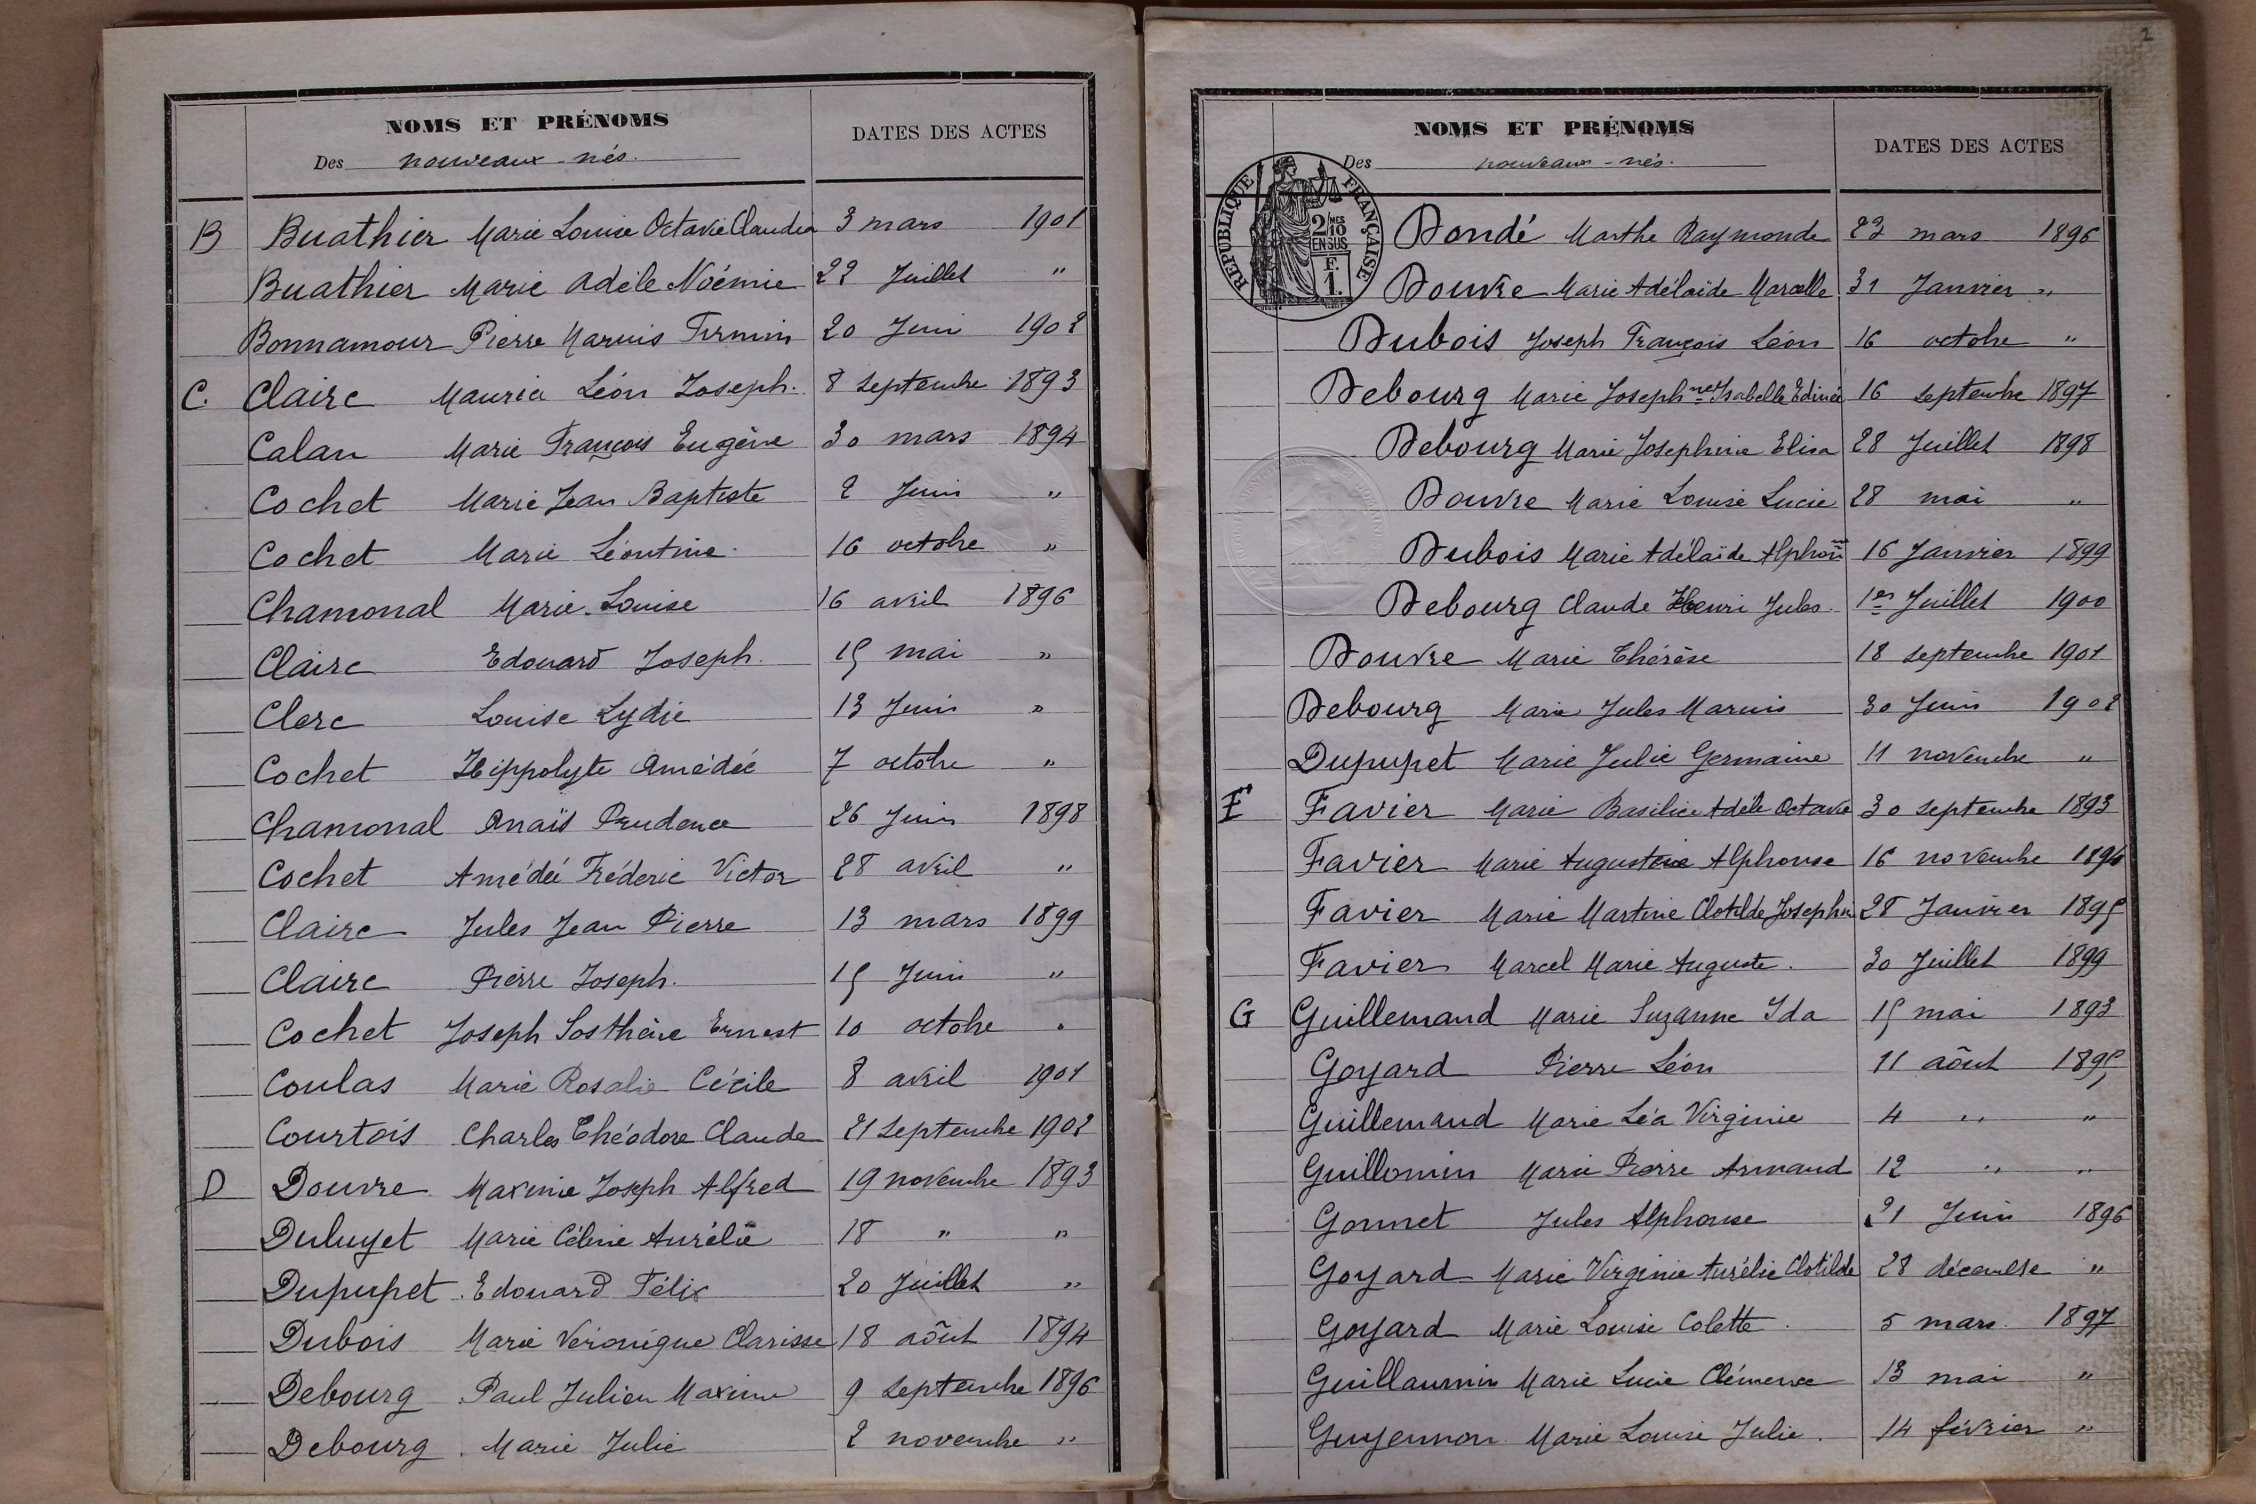 NOMS ET PRÉNOMS
Des nouveaux-nés.
DATES DES ACTES
B Buathier Marie Louise Octavie Claudia 3 mars 1901
Buathier Marie Adèle Noémie 22 Juillet "
Bonnamour Pierre Marius Firmin 20 Juin 1902
C. Claire Maurice Léon Joseph. 8 septembre 1893
Calan Marie François Eugène 30 mars 1894
Cochet Marie Jean Baptiste 2 Juin "
Cochet Marie Léontine. 16 octobre "
Chamonal Marie Louise 16 avril 1896
Claire Edouard Joseph. 15 mai "
Clerc Louise Lydie 13 Juin "
Cochet Hippolyte Amédée 7 octobre "
Chamonal Anaïs Prudence 26 Juin 1898
Cochet Amédée Fréderic Victor 28 avril "
Claire Jules Jean Pierre 13 mars 1899
Claire Pierre Joseph. 15 Juin "
Cochet Joseph Sosthène Ernest 10 octobre "
Coulas Marie Rosalie Cécile 8 avril 1901
Courtois Charles Théodore Claude 21 Septembre 1902
D Douvre Maximie Joseph Alfred 19 novembre 1893
Dubuyet Marie Céline Aurélie 18 " "
Dupupet Edouard Félix 20 Juillet "
Dubois Marie Véronique Clarisse 18 août 1894
Debourg Paul Julien Maxime 9 septembre 1896
Debourg Marie Julie 2 novembre "
2
NOMS ET PRÉNOMS
Des nouveaux-nés.
DATES DES ACTES
RÉPUBLIQUE FRANÇAISE
2/10 MES
EN SUS
F.
1.
Dondé Marthe Raymonde 22 mars 1896
Douvre Marie Adélaïde Marcelle 31 Janvier "
Dubois Joseph François Léon 16 octobre "
Debourg Marie Joseph.ne Isabelle 16 septembre 1897
Debourg Marie Josephine Elisa 28 Juillet 1898
Douvre Marie Louise Lucie 28 mai "
Dubois Marie Adélaïde 16 Janvier 1899
Debourg Claude Henri Jules. 1er Juillet 1900
Douvre Marie Thérèse 18 septembre 1901
Debourg Marie Jules Marius 30 Juin 1902
Dupupet Marie Julie Germaine 11 novembre "
F Favier Marie Basilice Adèle Octavie 30 septembre 1893
Favier Marie Augustine Alphonse 16 novembre 1894
Favier Marie Martine Clotilde Josephin 28 Janvier 1895
Favier Marcel Marie Auguste. 30 Juillet 1899
G Guillemaud Marie Suzanne Ida 15 mai 1893
Goyard Pierre Léon 11 août 1895
Guillemaud Marie Léa Virginie 4 " "
Guillomin Marie Pierre Armand 12 " "
Gonnet Jules Alphonse 21 Juin 1896
Goyard Marie Virginie Aurélie Clotilde 28 décembre "
Goyard Marie Louise Colette. 5 mars. 1897
Guillaumin Marie Lucie Clémence 13 mai "
Guyennon Marie Louise Julie. 14 février "